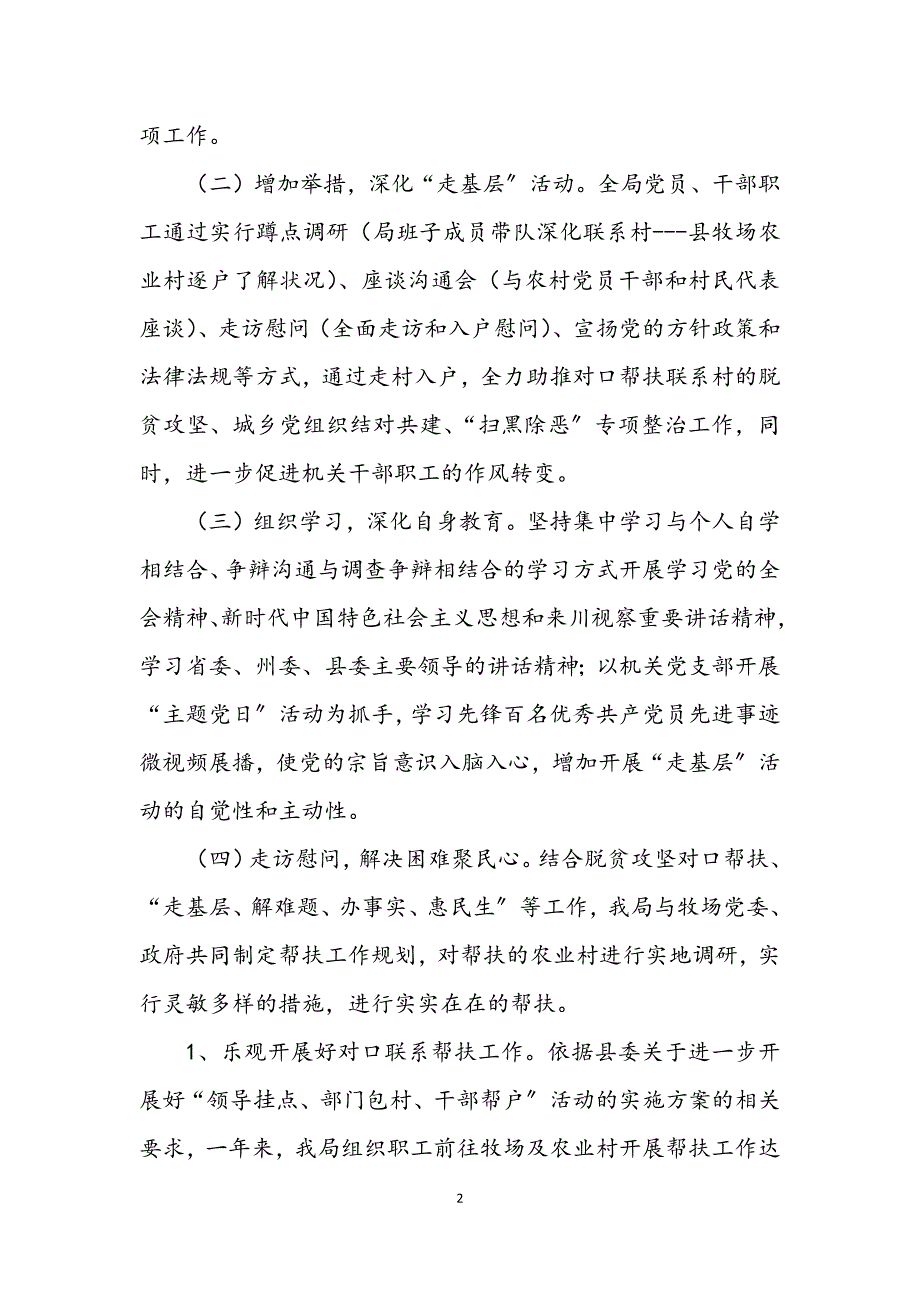 项工作。
（二）增加举措，深化“走基层〞活动。全局党员、干部职
工通过实行蹲点调研（局班子成员带队深化联系村---县牧场农
业村逐户了解状况）、座谈沟通会（与农村党员干部和村民代表
座谈）、走访慰问（全面走访和入户慰问）、宣扬党的方针政策和
法律法规等方式，通过走村入户，全力助推对口帮扶联系村的脱
贫攻坚、城乡党组织结对共建、“扫黑除恶〞专项整治工作，同
时，进一步促进机关干部职工的作风转变。
（三）组织学习，深化自身教育。坚持集中学习与个人自学
相结合、争辩沟通与调查争辩相结合的学习方式开展学习党的全
会精神、新时代中国特色社会主义思想和来川视察重要讲话精神，
学习省委、州委、县委主要领导的讲话精神；以机关党支部开展
“主题党日〞活动为抓手，学习先锋百名优秀共产党员先进事迹
微视频展播，使党的宗旨意识入脑入心，增加开展“走基层〞活
动的自觉性和主动性。
（四）走访慰问，解决困难聚民心。结合脱贫攻坚对口帮扶、
“走基层、解难题、办事实、惠民生〞等工作，我局与牧场党委、
政府共同制定帮扶工作规划，对帮扶的农业村进行实地调研，实
行灵敏多样的措施，进行实实在在的帮扶。
1、乐观开展好对口联系帮扶工作。依据县委关于进一步开
展好“领导挂点、部门包村、干部帮户〞活动的实施方案的相关
要求，一年来，我局组织职工前往牧场及农业村开展帮扶工作达
2